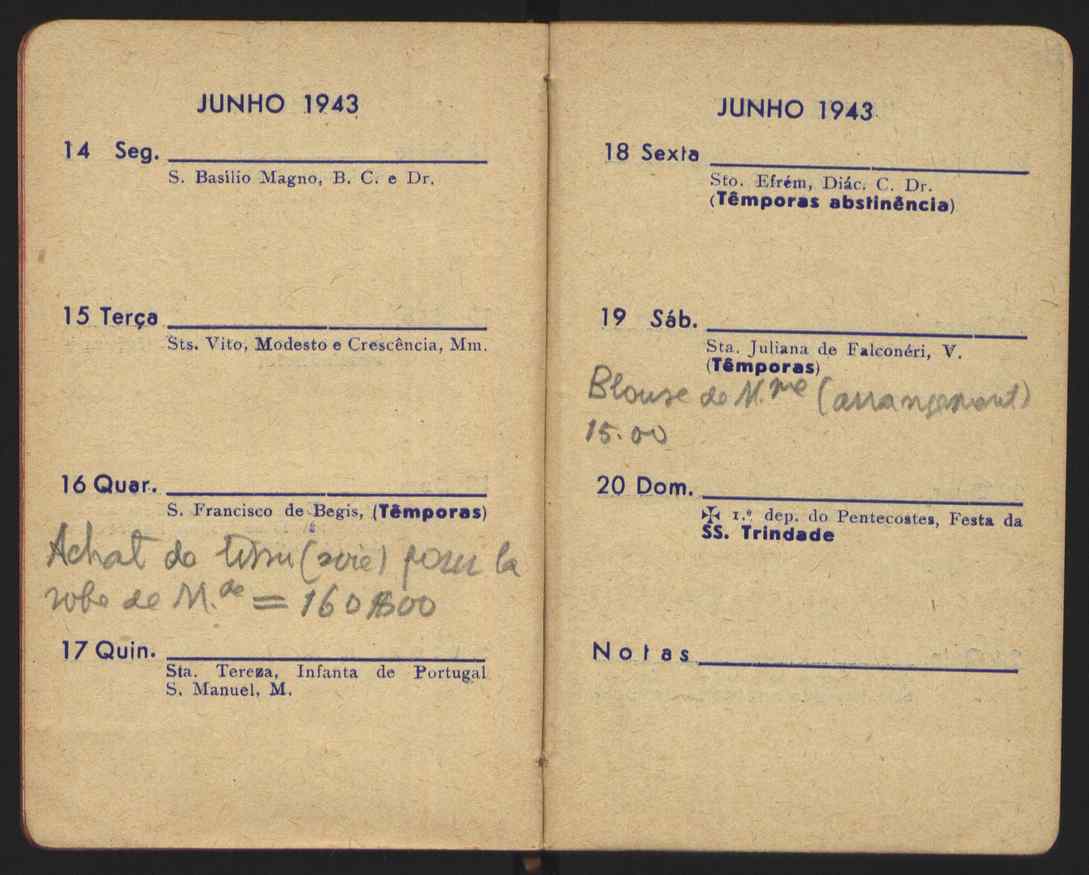 JUNHO 1943
14 Seg.
S. Basílio Magno, B. C. e Dr.
15 Terça
Sts. Vito, Modesto e Crescência, Mm.
16 Quar.
S. Francisco de Begis, (Têmporas)
Achat de tissu (soie) pour la
robe de M.de = 160$00
17 Quin.
Sta. Tereza, Infanta de Portugal
S. Manuel, M.
JUNHO 1943
18 Sexta
Sto. Efrém, Diác. C. Dr.
(Têmporas abstinência)
19 Sáb.
Sta. Juliana de Falconéri, V.
(Têmporas)
Blouse de M.me (arrangement)
15.00
20 Dom.
✠ 1.º dep. do Pentecostes, Festa da
SS. Trindade
Notas